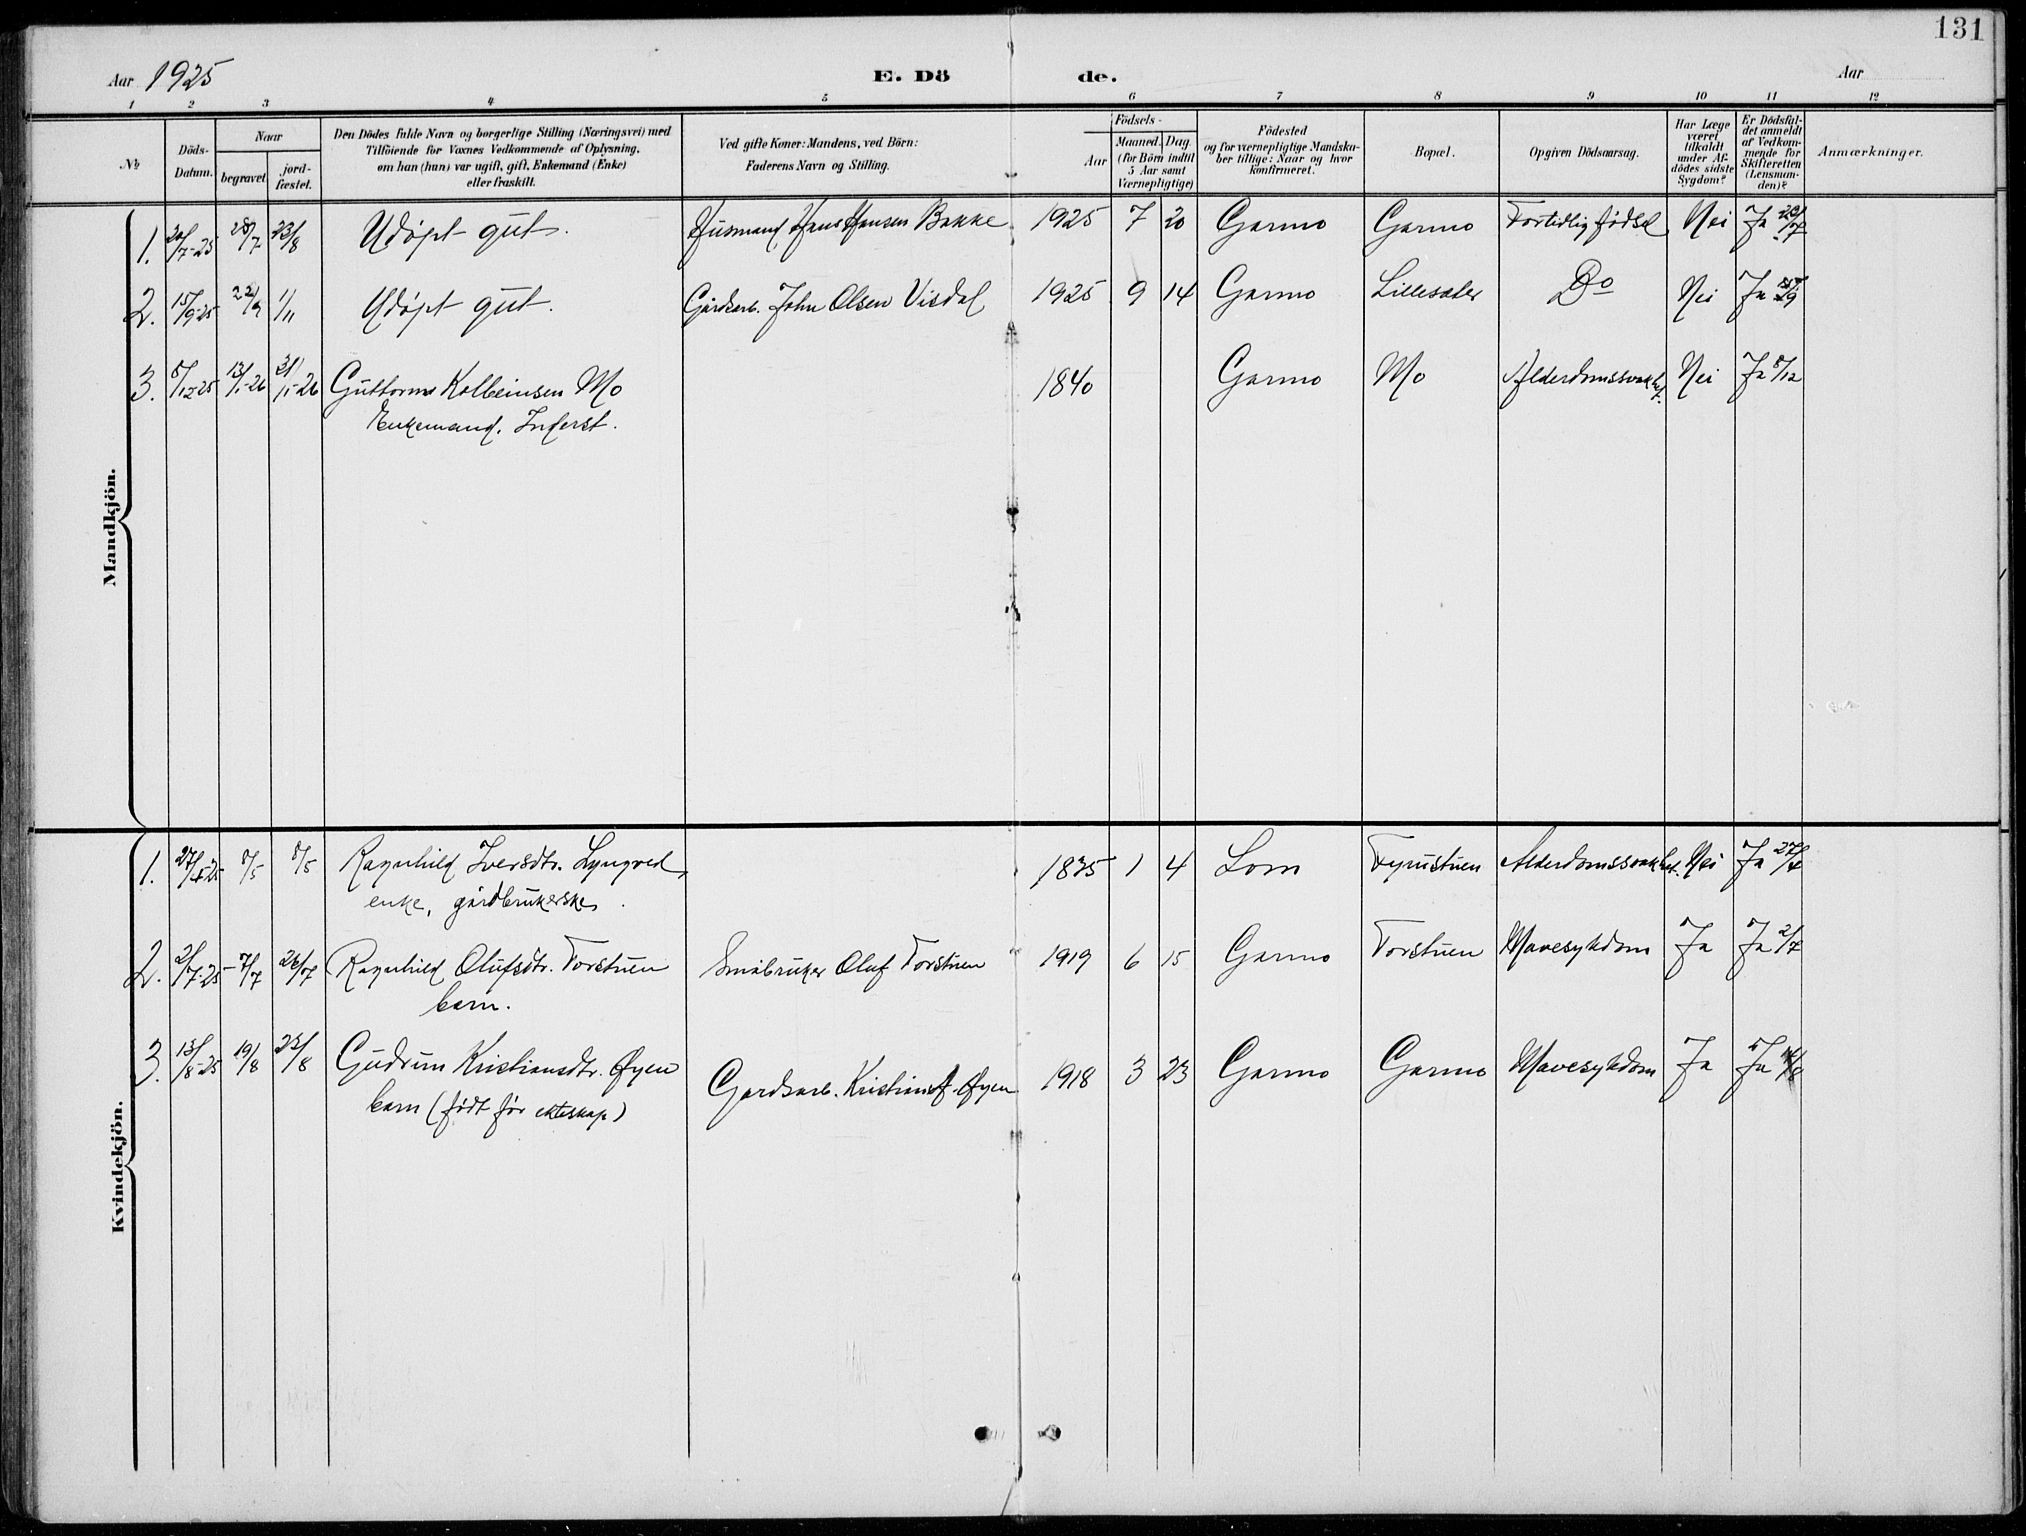 131
Aar 1925 E. Dö de. Aar
1 2 3 4 5 6 7 8 9 10 11 12
No
Döds-Datum.
Naar
begravet.
jord-fæstet.
Den Dödes fulde Navn og borgerlige Stilling (Næringsvei) med
Tilföiende for Voxnes Vedkommende af Oplysning,
om han (hun) var ugift, gift, Enkemand (Enke)
eller fraskilt.
Ved gifte Koner: Mandens, ved Börn:
Faderens Navn og Stilling.
Födsels-
Aar
Maaned. Dag.
(for Börn indtil
5 Aar samt
Værnepligtige)
Födested
og for værnepligtige Mandska-
ber tillige: Naar og hvor
konfirmeret.
Bopæl.
Opgiven Dödsaarsag.
Har Læge
været
tilkaldt
under Af-
dödes sidste
Sygdom?
Er Dödsfal-
det anmeldt
af Vedkom-
mende for
Skifteretten
(Lensman-
den)?
Anmærkninger.
Mandkjön.
1. 20/7-25 28/7 23/8 Udøpt gut. Husmand Hans Hansen Bakke 1925 7 20 Garmo Garmo Fortidlig fødsel Nei Ja 20/7
2. 15/9-25 22/9 1/11 Udøpt gut. Gårdsarb. John Olsen Visdal 1925 9 14 Garmo Lillesæter Do Nei Ja
3. 8/12-25 13/1-26 31/1-26 Guttorm Kolbeinsen Mo 1840 Garmo Mo Alderdomssvakhet. Nei Ja 8/12
Enkemand. Inderst.
Kvindekjön.
1. 27/4-25 8/5 8/5 Ragnhild Iversdtr. Lyngved, 1835 1 4 Lom Fyrustuen Alderdomssvakhet. Nei Ja 27/4
enke, gårdbrukerske.
2. 2/7-25 7/7 26/7 Ragnhild Olufsdtr. Torstuen Småbruker Oluf Torstuen 1919 6 15 Garmo Torstuen Mavesykdom Ja Ja 2/7
barn.
3. 13/8-25 19/8 23/8 Gudrun Kristiansdtr. Øyen Gardsarb. Kristian Øyen 1918 3 23 Garmo Garmo Mavesykdom Ja Ja
barn (født før ekteskap)